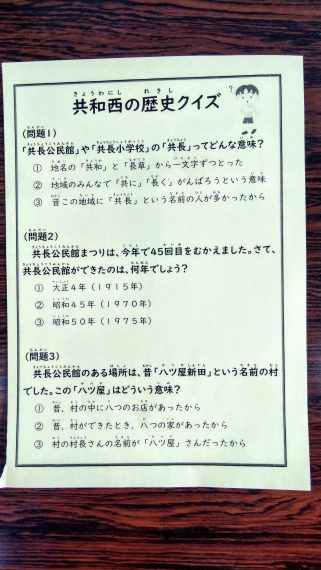 共和西の歴史クイズ
(問題1)
「共長公民館」や「共長小学校」の「共長」ってどんな意味?
① 地名の「共和」と「長草」から一文字ずつとった
② 地域のみんなで「共に」「長く」がんばろうという意味
③ 昔この地域に「共長」という名前の人が多かったから
(問題2)
共長公民館まつりは、今年で45回目をむかえました。さて、
共長公民館ができたのは、何年でしょう?
① 大正4年(1915年)
② 昭和45年(1970年)
③ 昭和50年(1975年)
(問題3)
共長公民館のある場所は、昔「八ツ屋新田」という名前の村
でした。この「八ツ屋」はどういう意味?
① 昔、村の中に八つのお店があったから
② 昔、村ができたとき、八つの家があったから
③ 村の村長さんの名前が「八ツ屋」さんだったから